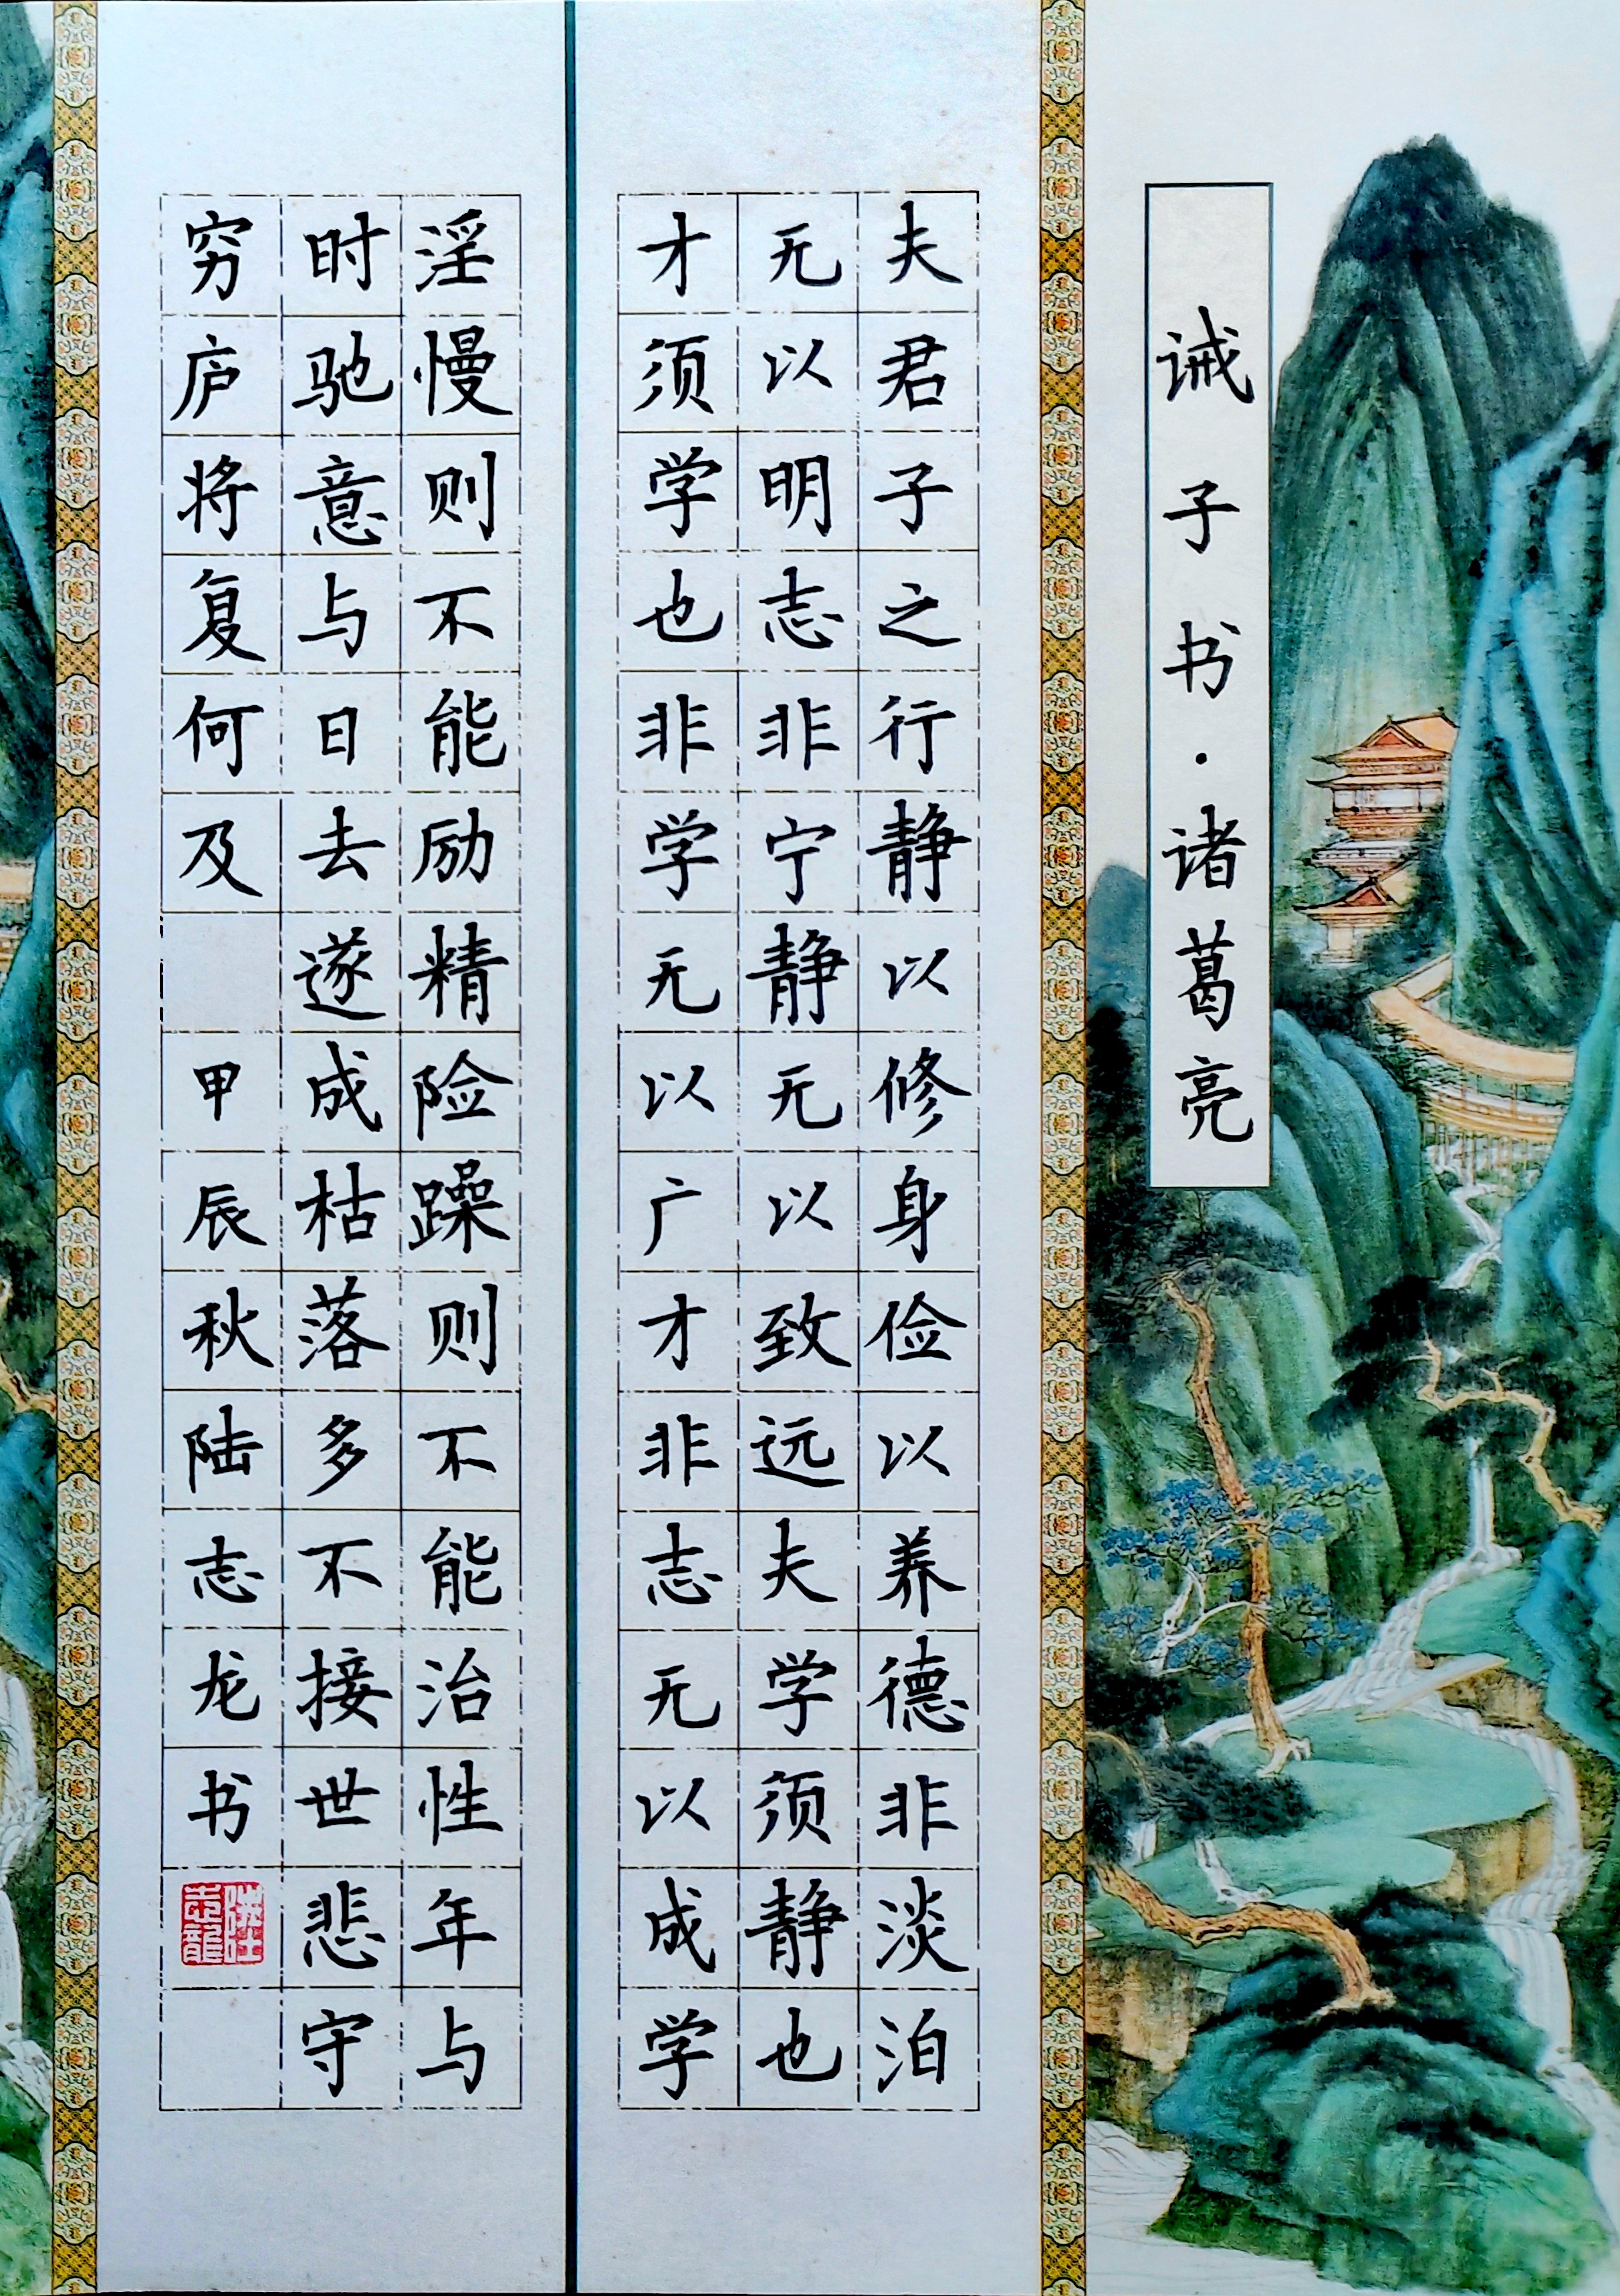 诫子书·诸葛亮
夫君子之行静以修身俭以养德非淡泊
无以明志非宁静无以致远夫学须静也
才须学也非学无以广才非志无以成学
淫慢则不能励精险躁则不能治性年与
时驰意与日去遂成枯落多不接世悲守
穷庐将复何及 甲辰秋陆志龙书